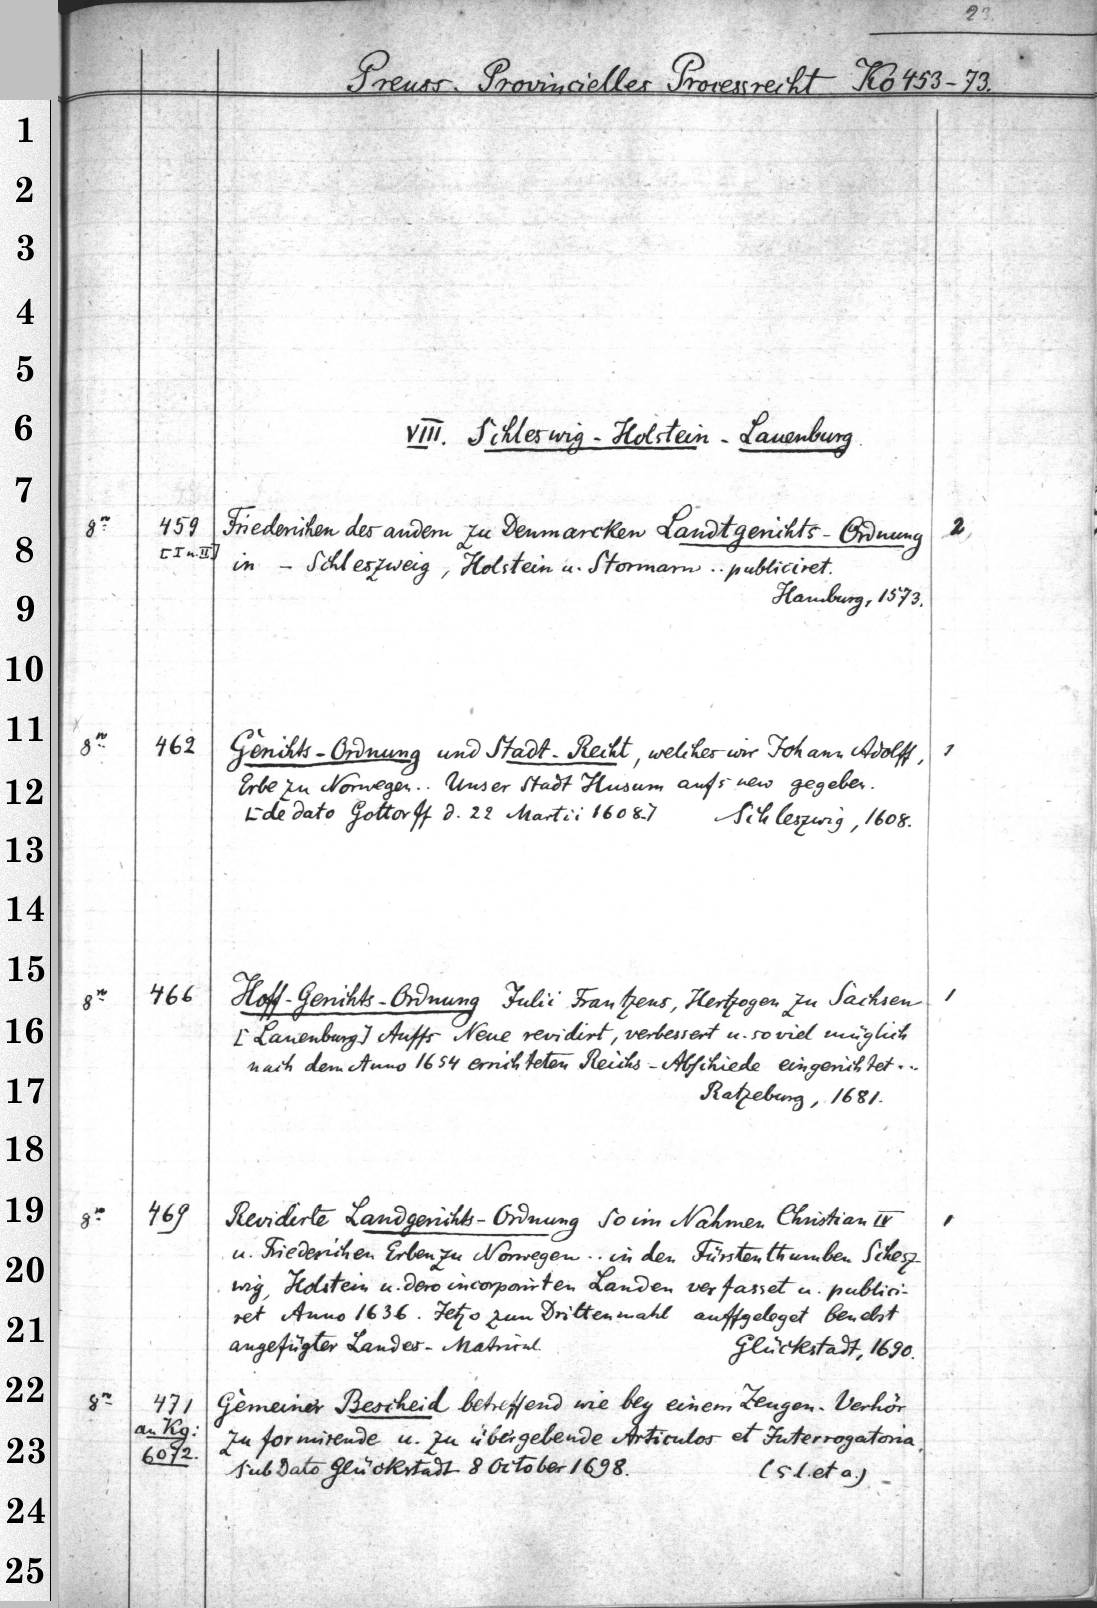 23.
Preuss. Provincielles Processrecht Ko 453-73.
1
2
3
4
5
6
VIII. Schleswig-Holstein-Lauenburg.
7
8º 459 Friederichen des andern zu Denmarcken Landtgerichts-Ordnung 2
8
[I u. II] in - Schleszweig, Holstein u. Stormarn .. publiciret.
9
Hamburg, 1573.
10
11
8º 462 Gerichts-Ordnung und Stadt-Recht, welches wir Johann Adolff, 1
12
Erbe zu Norwegen .. Unser Stadt Husum aufs new gegeben.
[de dato Gottorff d. 22 Martii 1608.] Schleszwig, 1608.
13
14
15
8º 466 Hoff-Gerichts-Ordnung Julii Frantzens, Hertzogen zu Sachsen 1
16
[Lauenburg] Auffs Neue revidirt, verbessert u. so viel müglich
nach dem Anno 1654 errichteten Reichs-Abschiede eingerichtet ..
17
Ratzeburg, 1681.
18
19
8º 469 Revidirte Landgerichts-Ordnung So im Nahmen Christian IV 1
u. Friederichen Erben zu Norwegen .. in den Fürstenthumben Schesz-
20
wig, Holstein u. dero incorporirten Landen verfasset u. publici-
ret Anno 1636. Jetzo zum Drittenmahl auffgeleget benebst
21
angefügter Landes-Matricul. Glückstadt, 1690.
22
8º 471 Gemeiner Bescheid betreffend wie bey einem Zeugen-Verhör
an Kg: zu formirende u. zu übergebende Articulos et Interrogatoria.
23
6072. sub Dato Glückstadt 8 October 1698. (s. l. et a.)
24
25